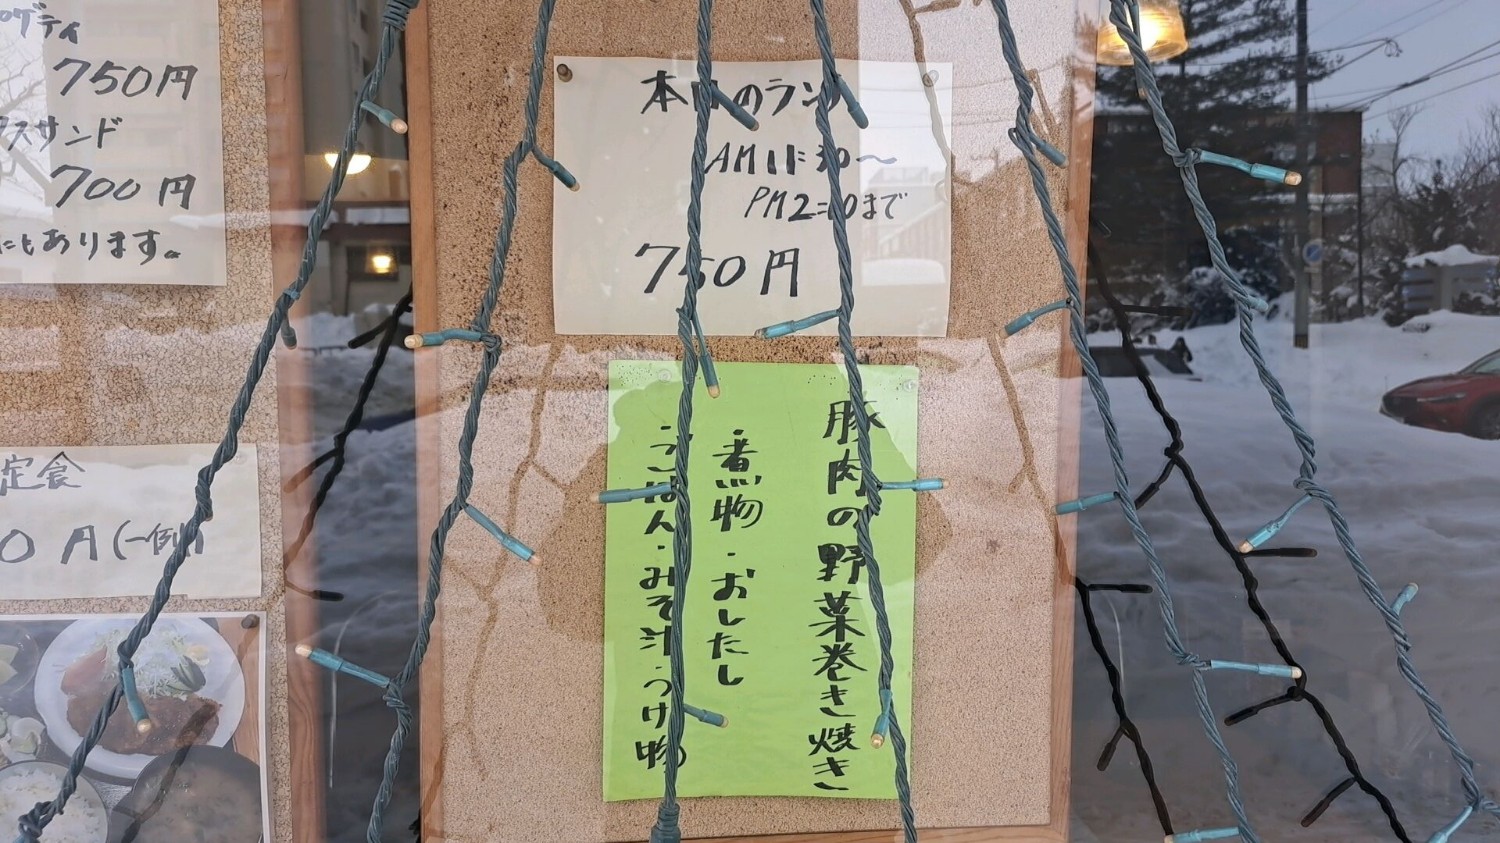 ゲティ
750円
スサンド
700円
にもあります。
定食
0円(一例)
本日のランチ
AM11:30〜
PM2:10まで
750円
豚肉の野菜巻き焼き
・煮物・おしたし
・ごはん・みそ汁・つけ物